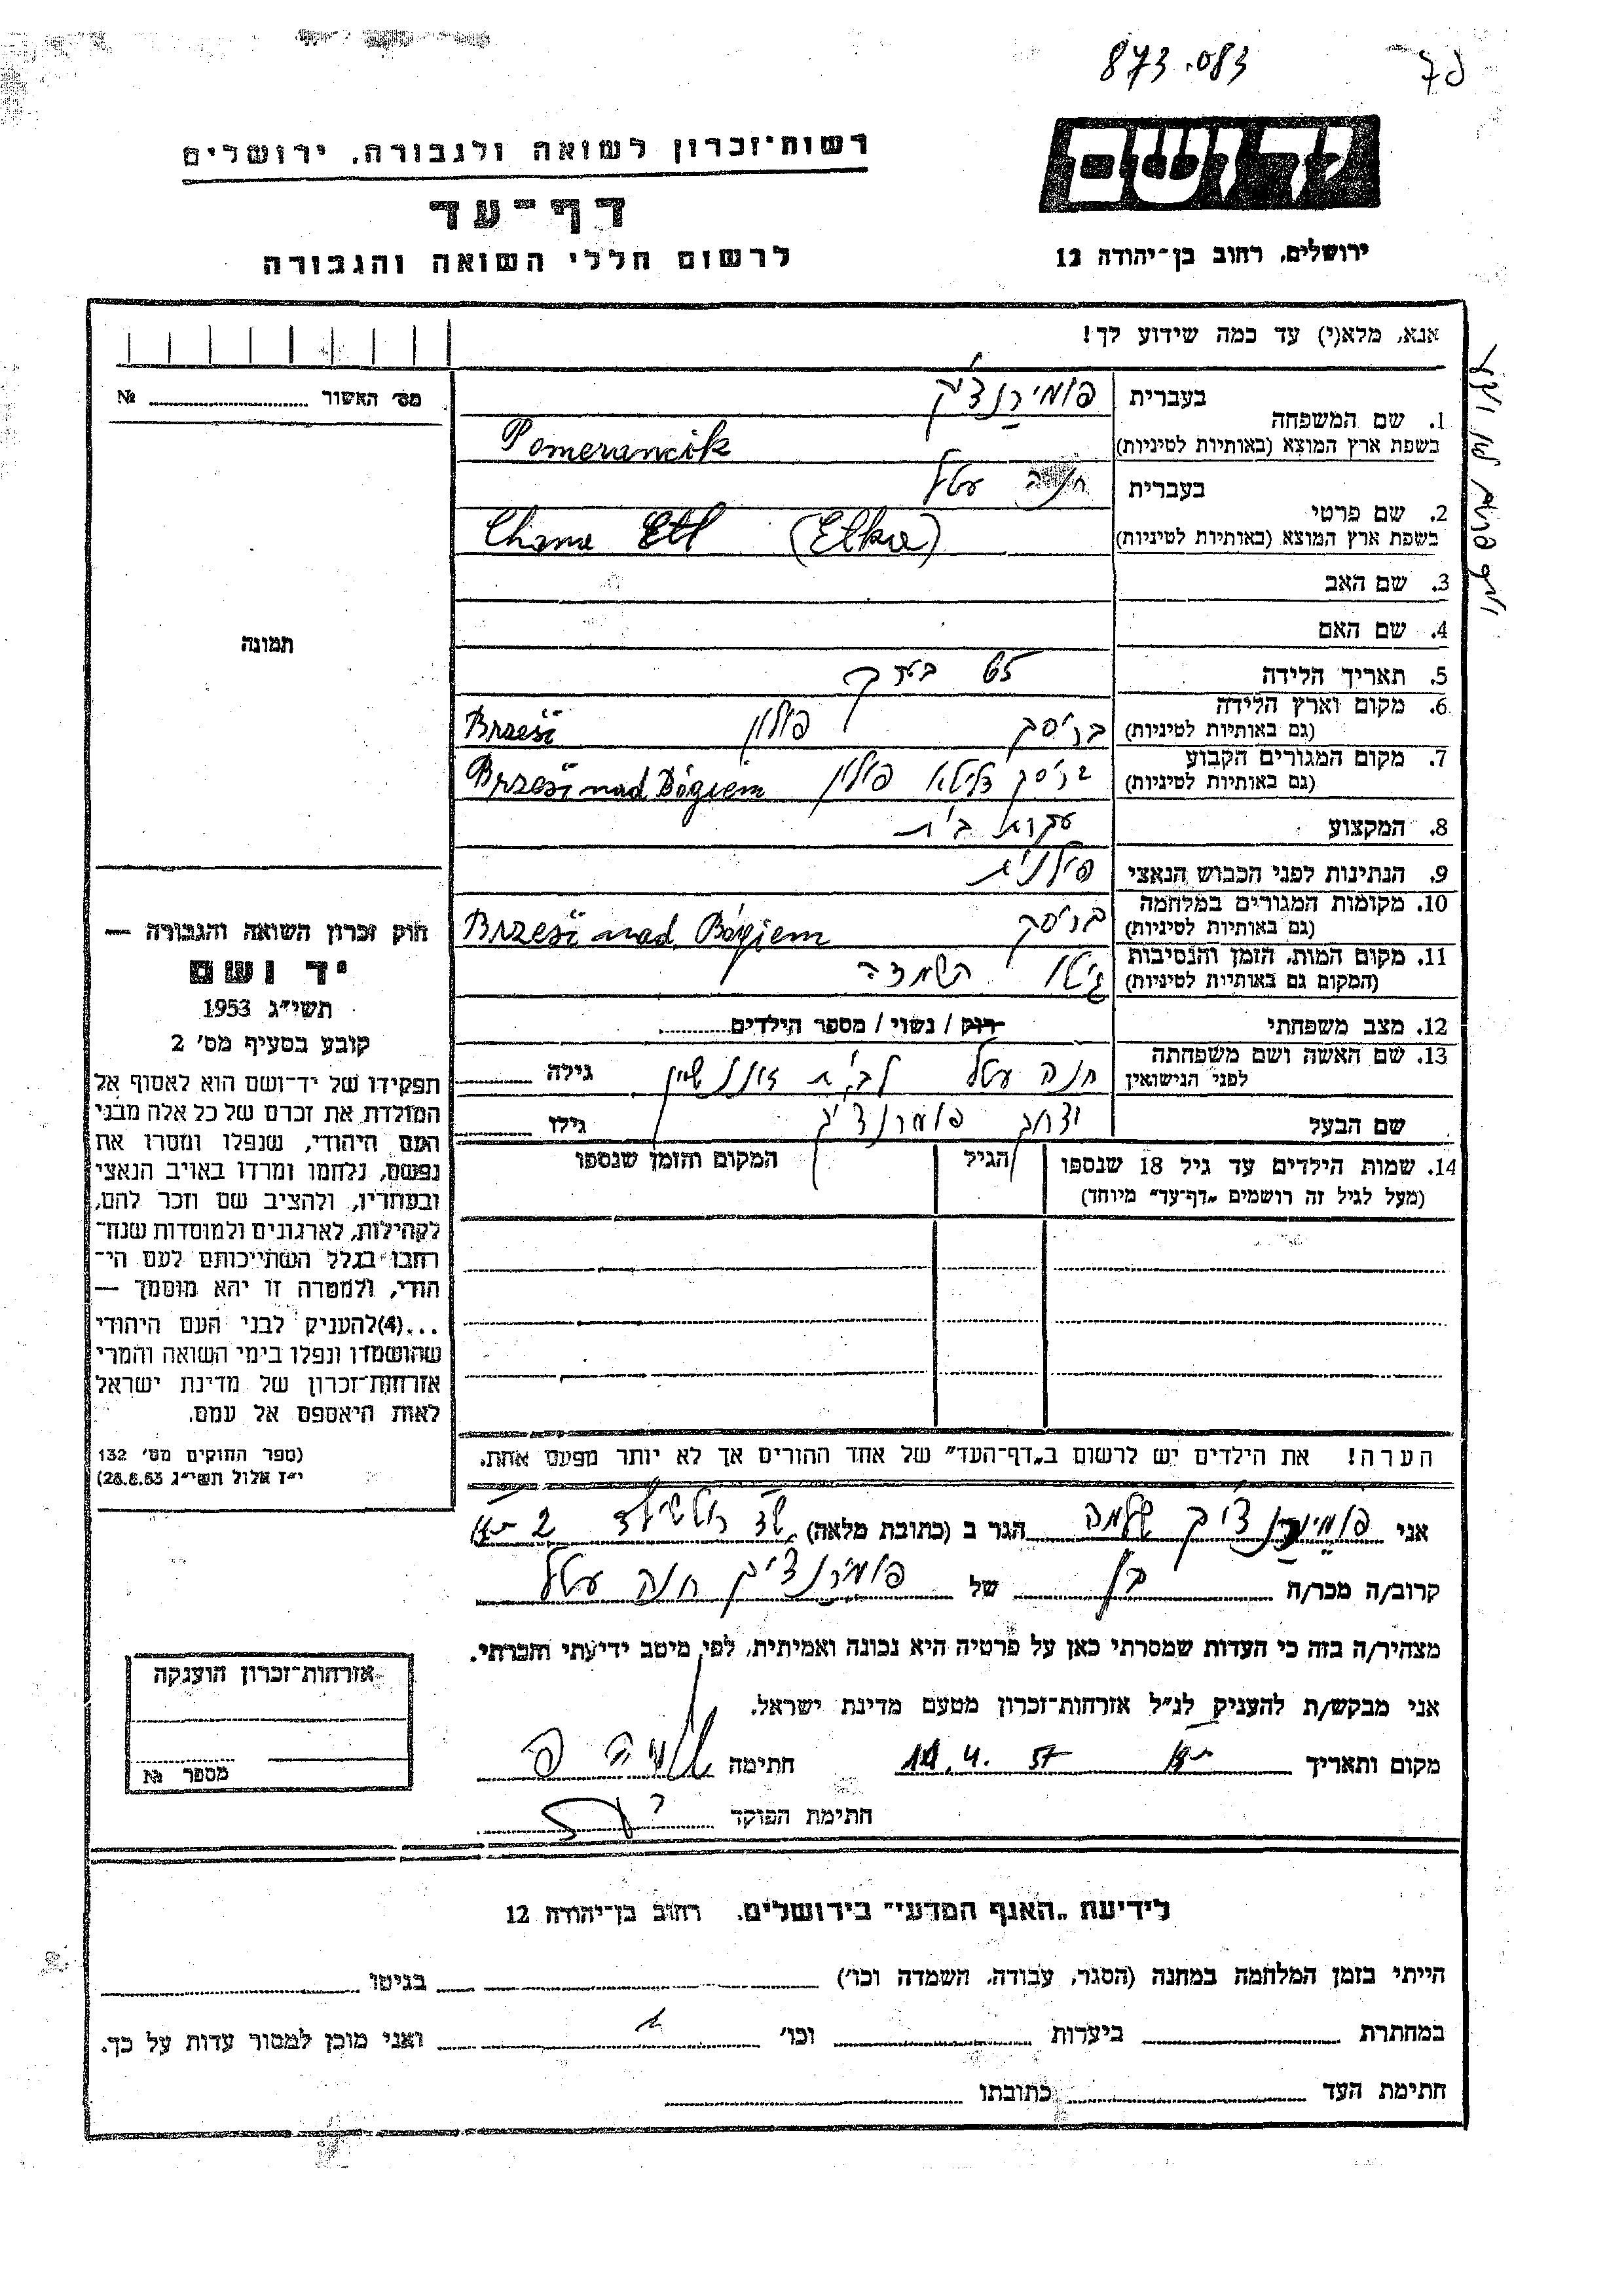 873.083
רשות־זכרון לשואה ולגבורה, ירושלים
דף־עד
לרשום חללי השואה והגבורה
יד ושם
ירושלים, רחוב בן־יהודה 12
אנא, מלא(י) עד כמה שידוע לך!
מס׳ האשור № 
1. שם המשפחה
בעברית פומירנצ׳יק
בשפת ארץ המוצא (באותיות לטיניות) Pomerancik
2. שם פרטי
בעברית חנה עטל
בשפת ארץ המוצא (באותיות לטיניות) Chana Etl (Etka)
3. שם האב
4. שם האם
תמונה
5. תאריך הלידה 65 בערך
6. מקום וארץ הלידה
(גם באותיות לטיניות) בריסק פולין Brześć
7. מקום המגורים הקבוע
(גם באותיות לטיניות) בריסק דליטא פולין Brześć nad Bógiem
8. המקצוע עקרת בית
9. הנתינות לפני הכבוש הנאצי פולנית
10. מקומות המגורים במלחמה
(גם באותיות לטיניות) בריסק Brześć nad Bógiem
11. מקום המות, הזמן והנסיבות
(המקום גם באותיות לטיניות) גיטו השמדה
12. מצב משפחתי רוק / נשוי / מספר הילדים
13. שם האשה ושם משפחתה
לפני הנישואין חנה עטל לבית גילה
שם הבעל יצחק פומרנצ׳יק גילו
14. שמות הילדים עד גיל 18 שנספו
(מעל לגיל זה רושמים „דף־עד״ מיוחד)
הגיל
המקום והזמן שנספו
חוק זכרון השואה והגבורה —
יד ושם
תשי״ג 1953
קובע בסעיף מס׳ 2
תפקידו של יד־ושם הוא לאסוף אל
המולדת את זכרם של כל אלה מבני
העם היהודי, שנפלו ומסרו את
נפשם, נלחמו ומרדו באויב הנאצי
ובעוזריו, ולהציב שם וזכר להם,
לקהילות, לארגונים ולמוסדות שנח־
רבו בגלל השתייכותם לעם הי־
הודי, ולמטרה זו יהא מוסמך —
...(4)להעניק לבני העם היהודי
שהושמדו ונפלו בימי השואה והמרי
אזרחות־זכרון של מדינת ישראל
לאות היאספם אל עמם.
(ספר החוקים מס׳ 132
י״ז אלול תשי״ג 28.8.53)
הערה! את הילדים יש לרשום ב„דף־העד״ של אחד ההורים אך לא יותר מפעם אחת.
אני פומירנצ׳יק שלמה הגר ב (כתובת מלאה) שד רוטשילד 2
קרוב/ה מכר/ה בן של פומירנצ׳יק חנה עטל
מצהיר/ה בזה כי העדות שמסרתי כאן על פרטיה היא נכונה ואמיתית, לפי מיטב ידיעתי והכרתי.
אני מבקש/ת להעניק לנ״ל אזרחות־זכרון מטעם מדינת ישראל.
מקום ותאריך 57 .4 חתימה
חתימת הפוקד
אזרחות־זכרון הוענקה
מספר №
לידיעת „האגף המדעי״ בירושלים, רחוב בן־יהודה 12
הייתי בזמן המלחמה במחנה (הסגר, עבודה, השמדה וכו׳) בגיטו
במחתרת ביערות וכו׳ ואני מוכן למסור עדות על כך.
חתימת העד כתובתו